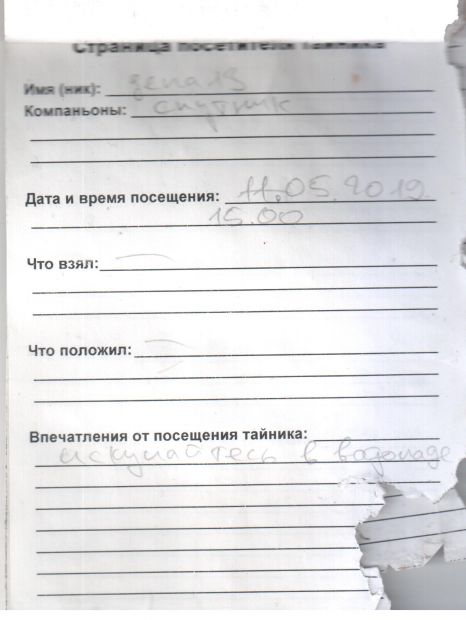 Страница посетителя тайника
Имя (ник): дена13
Компаньоны: спутник
Дата и время посещения: 11.05.2012
15.00
Что взял:
Что положил:
Впечатления от посещения тайника:
искупайтесь в водопаде